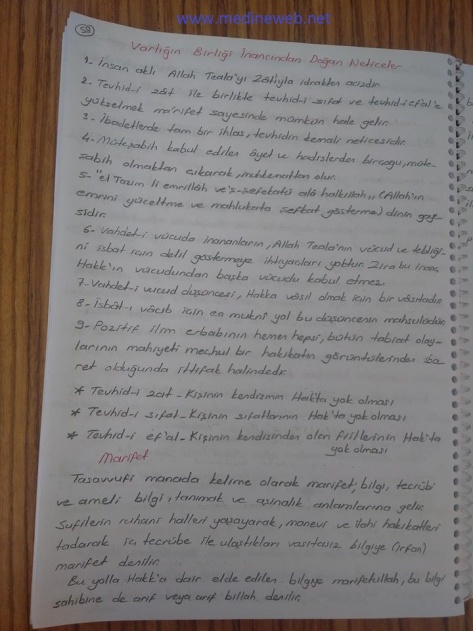 www.medineweb.net
58
Varlığın Birliği İnancından Doğan Neticeler
1. İnsan aklı Allah Teala'yı Zâtıyla idrakten acizdir.
2. Tevhid-i zât ile birlikte tevhid-i sıfat ve tevhid-i ef'al'e
yükselmek ma'rifet sayesinde mümkün hale gelir.
3- İbadetlerde tam bir ihlas, tevhidin kemali neticesidir.
4- Müteşabih kabul edilen âyet ve hadislerden birçoğu, müte-
şabih olmaktan çıkarak, muhkemattan olur.
5- "et Tazim li emrillâh ve'ş-şefekatü alâ halkıllah,, (Allah'ın
emrini yüceltme ve mahlukata şefkat gösterme) dinin
sidir.
6- Vahdet-i vücuda inananların, Allah Teala'nın vücud ve
ni isbat için delil göstermeye ihtiyaçları yoktur. Zira bu inanç
Hakk'ın vücudundan başka vücudu kabul etmez.
7- Vahdet-i vücud düşüncesi, Hakka vâsıl olmak için bir vâsıtadır.
8- İsbât-ı vâcib için en mukni yol bu düşüncenin mahsulüdür.
9- Pozitif ilm erbabının hemen hepsi, bütün tabiat olay-
larının mahiyeti meçhul bir hakikatın görüntülerinden iba-
ret olduğunda ittifak halindedir.
* Tevhid-i zat - Kişinin kendisinin Hak'ta yok olması
* Tevhid-i sıfat - Kişinin sıfatlarının Hak'ta yok olması
* Tevhid-i ef'al - Kişinin kendisinden olan fiillerinin Hak'ta
yok olması
Marifet
Tasavvufi manada kelime olarak marifet; bilgi, tecrübi
ve ameli bilgi, tanımak ve aşinalık anlamlarına gelir.
Sufilerin ruhani halleri yaşayarak, manevi ve ilahi hakikatleri
tadarak iç tecrübe ile ulaştıkları vasıtasız bilgiye (irfan)
marifet denilir.
Bu yolla Hakk'a dair elde edilen bilgiye marifetullah, bu bilgi
sahibine de arif veya arif billah denilir.